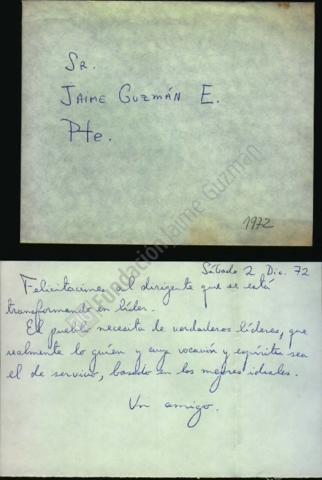 Sr.
Jaime Guzmán E.
Pte.
1972
Fundación Jaime Guzmán
Sábado 2 Dic. 72
Felicitaciones al dirigente que se está
transformando en líder.
El pueblo necesita de verdaderos líderes, que
realmente lo guíen y cuya vocación y espíritu sea
el de servicio, basado en los mejores ideales.
Un amigo.